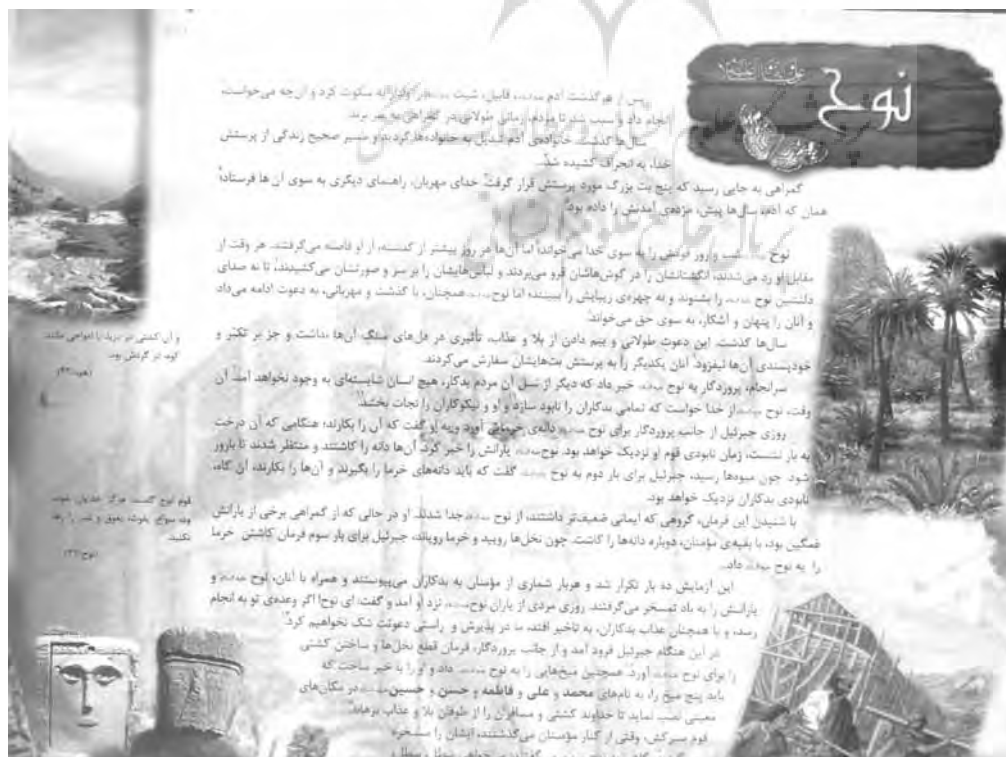 نوح
پس از هر گذشت آدم قابیل، شیث را وادار به سکوت کرد و آن‌چه می‌خواست،
انجام داد و سبب شد تا مردم، زمانی طولانی در گمراهی به سر برند.
سال‌ها گذشت. خانواده‌ی آدم تبدیل به خانواده‌ها گردید و مسیر صحیح زندگی از پرستش
خدا، به انحراف کشیده شد.
گمراهی به جایی رسید که پنج بت بزرگ مورد پرستش قرار گرفت. خدای مهربان، راهنمای دیگری به سوی آن ها فرستاد؛
همان که آدم، سال‌ها پیش، مژده‌ی آمدنش را داده بود.
نوح شب و روز قومش را به سوی خدا می‌خواند؛ اما آن‌ها هر روز بیشتر از گذشته، از او فاصله می‌گرفتند. هر وقت از
مقابل او رد می‌شدند، انگشتانشان را در گوش‌هاشان فرو می‌بردند و لباس‌هایشان را بر سر و صورتشان می‌کشیدند؛ تا نه صدای
دلنشین نوح را بشنوند و نه چهره‌ی زیبایش را ببینند؛ اما نوح همچنان، با گذشت و مهربانی، به دعوت ادامه می‌داد
و آنان را پنهان و آشکار، به سوی حق می‌خواند.
سال‌ها گذشت. این دعوت طولانی و بیم دادن از بلا و عذاب، تأثیری در دل‌های سنگ آن‌ها نداشت و جز بر تکبّر و
خودپسندی آن‌ها نیفزود. آنان یکدیگر را به پرستش بت‌هایشان سفارش می‌کردند.
سرانجام، پروردگار به نوح خبر داد که دیگر از نسل آن مردم بدکار، هیچ انسان شایسته‌ای به وجود نخواهد آمد. آن
وقت، نوح از خدا خواست که تمامی بدکاران را نابود سازد و او و نیکوکاران را نجات بخشد.
روزی جبرئیل از جانب پروردگار برای نوح دانه‌ی خرمایی آورد و به او گفت که آن را بکارند؛ هنگامی که آن درخت
به بار نشست، زمان نابودی قوم او نزدیک خواهد بود. نوح یارانش را خبر کرد. آن‌ها دانه را کاشتند و منتظر شدند تا بارور
شود. چون میوه‌ها رسید، جبرئیل برای بار دوم به نوح گفت که باید دانه‌های خرما را بگیرند و آن‌ها را بکارند، آن گاه،
نابودی بدکاران نزدیک خواهد بود.
با شنیدن این فرمان، گروهی که ایمانی ضعیف‌تر داشتند، از نوح جدا شدند. او در حالی که از گمراهی برخی از یارانش
غمگین بود، با بقیه‌ی مؤمنان، دوباره دانه‌ها را کاشت. چون نخل‌ها رویید و خرما رویاند، جبرئیل برای بار سوم فرمان کاشتن خرما
را به نوح داد...
این آزمایش ده بار تکرار شد و هربار شماری از مؤمنان به بدکاران می‌پیوستند و همراه با آنان، نوح و
یارانش را به باد تمسخر می‌گرفتند. روزی مردی از یاران نوح نزد او آمد و گفت: ای نوح! اگر وعده‌ی تو به انجام
رسد، و یا همچنان عذاب بدکاران، به تاخیر افتد، ما در پذیرش و راستی دعوتت شک نخواهیم کرد.
در این هنگام جبرئیل فرود آمد و از جانب پروردگار، فرمان قطع نخل‌ها و ساختن کشتی
را برای نوح آورد. همچنین میخ‌هایی را به نوح داد و او را با خبر ساخت که
باید پنج میخ را، به نام‌های محمد و علی و فاطمه و حسن و حسین در مکان‌های
معینی نصب نماید تا خداوند کشتی و مسافران را از طوفان بلا و عذاب برهاند.
قوم سرکش، وقتی از کنار مؤمنان می‌گذشتند، ایشان را مسخره
و آن کشتی می‌برد با امواجی مانند
کوه، در گردش بود.
(هود/۴۲)
قوم نوح گفتند: هرگز خدایان خود،
ود، سواع، یغوث، یعوق و نسر را رها
نکنید.
(نوح/۲۳)